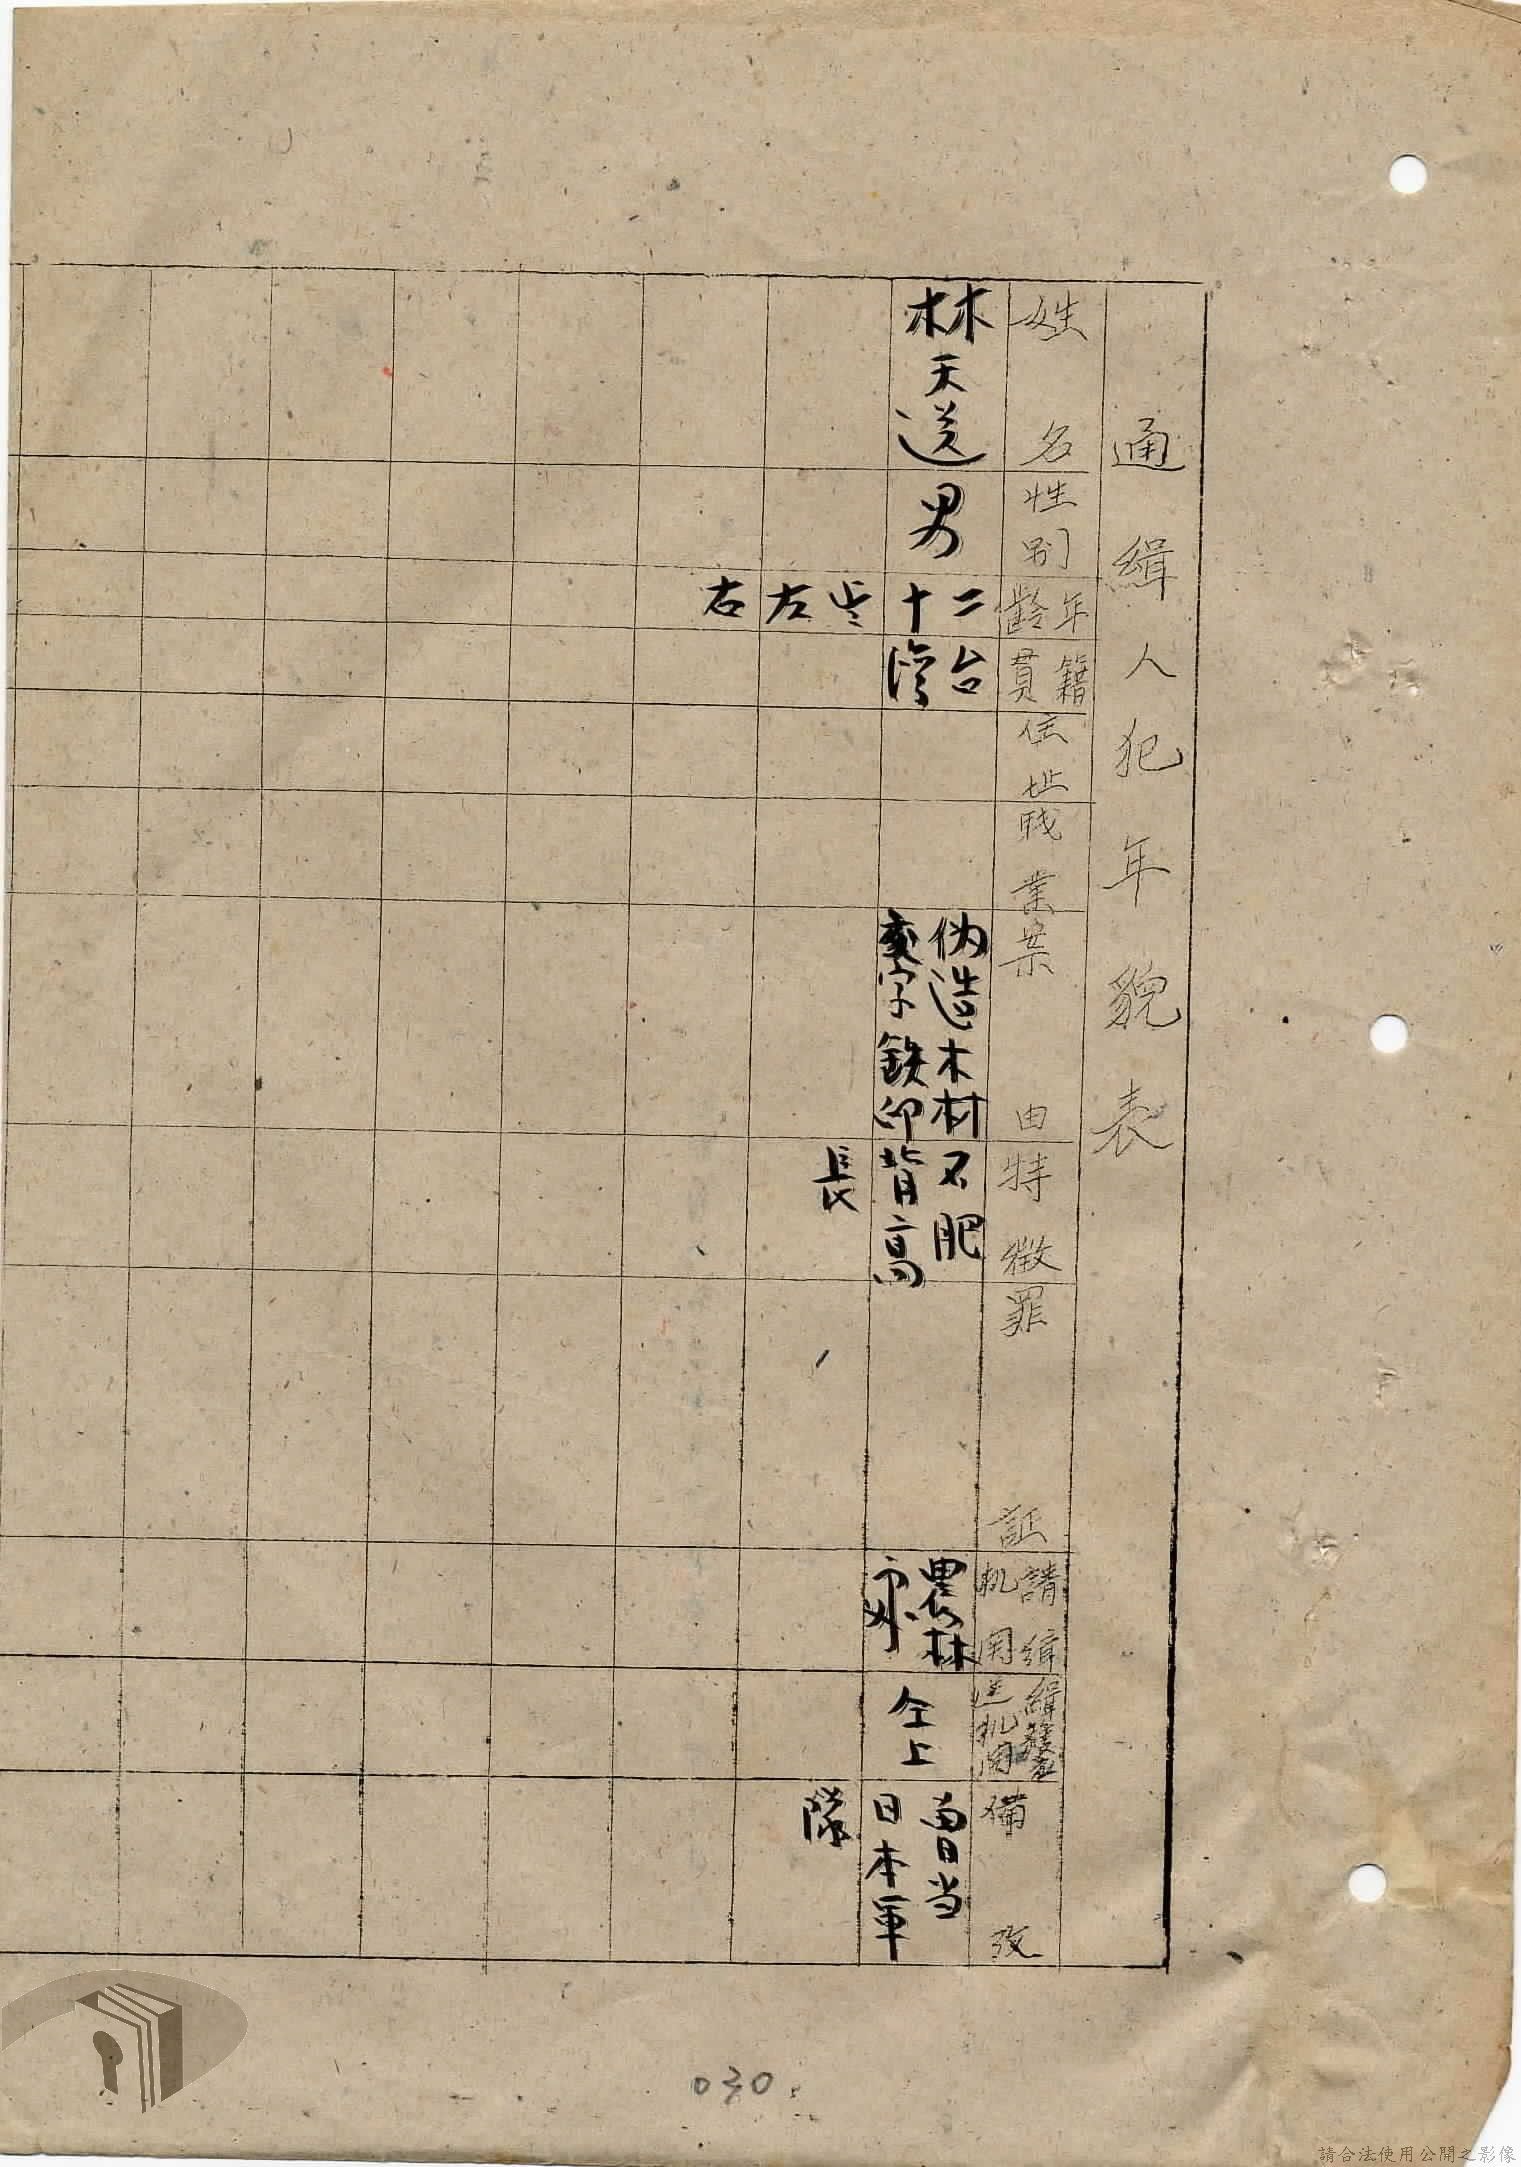 通緝人犯年貌表
姓名
性別
年齡
籍貫
住址
职業
案由
特徵
罪証
請緝机関
緝發送机関
備攷
林天送
男
二十
左
右
台灣
伪造木材
字鉄印
不肥
背高
長
農林
仝上
曾当
日本軍
隊
030
請合法使用公開之影像